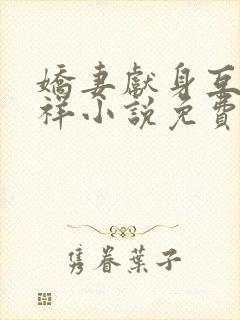 嬌妻獻身互
祥小說免費
隽眷葉子